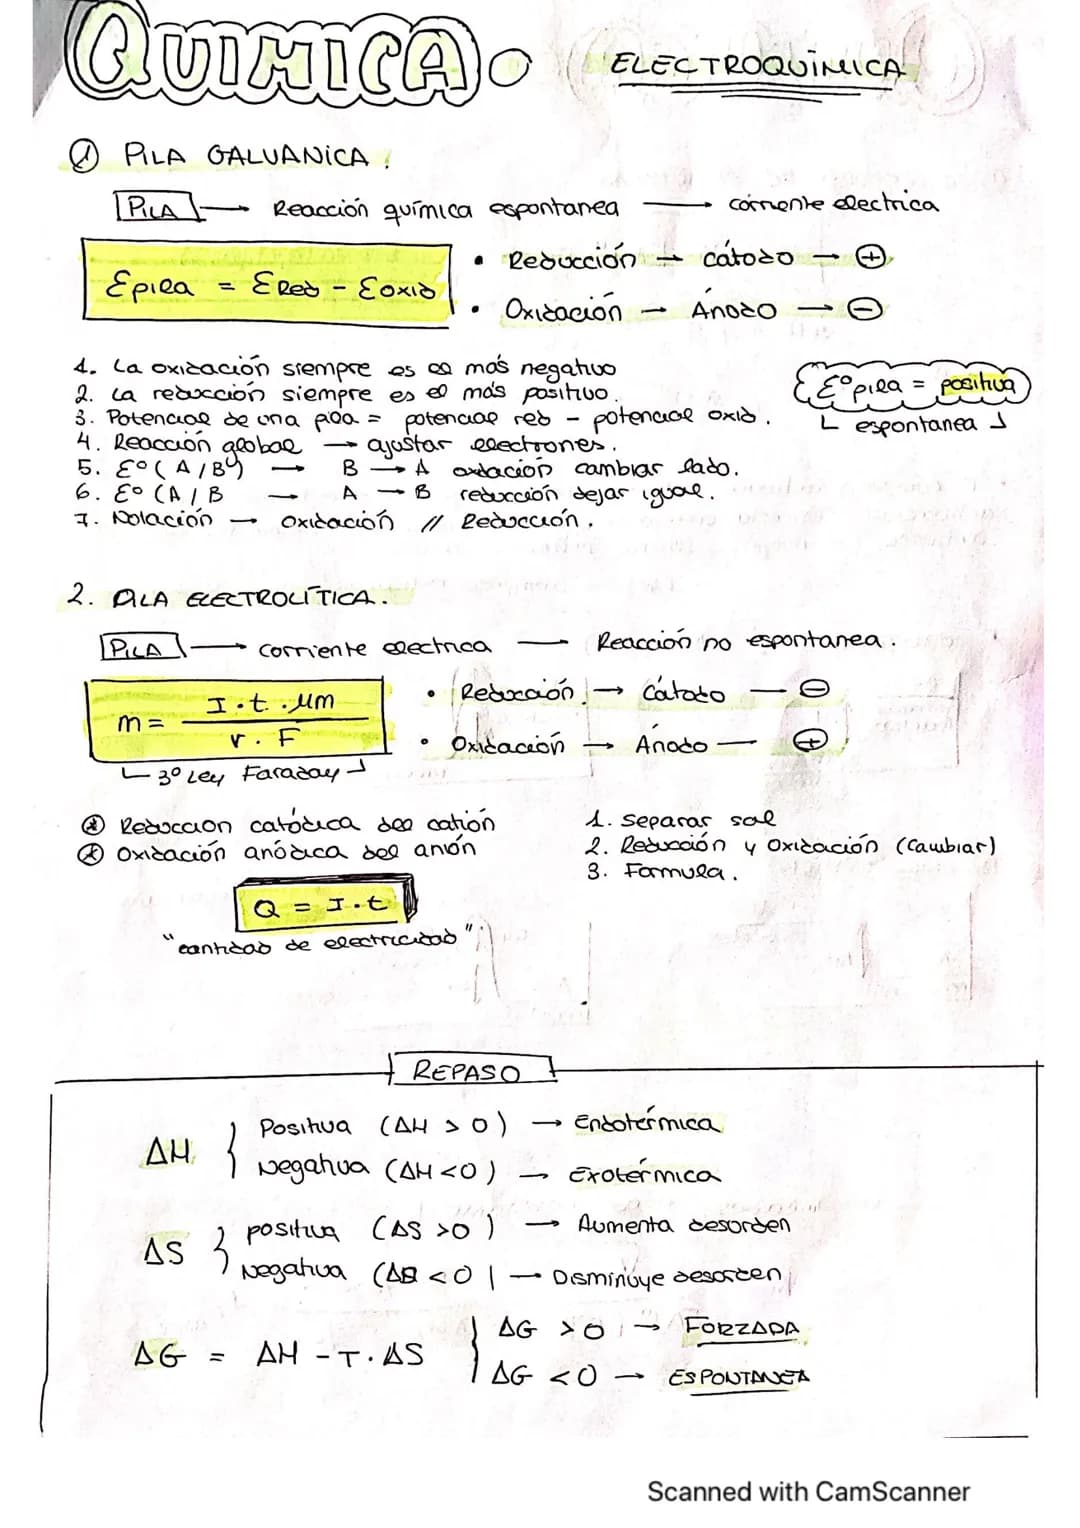 QUIMICA. ELECTROQUÍMICA
① PILA GALVANICA.
PILA → Reacción química espontanea → corriente electrica
Epila = E Red - Eoxid
• Reducción → cátodo → ⊕
• Oxidación → Ánodo → ⊖
1. La oxidación siempre es el más negativo
2. La reducción siempre es el más positivo.
3. Potencial de una pila = potencial red - potencial oxid.
4. Reacción global → ajustar electrones.
5. E° (A/B) → B → A oxidación cambiar lado.
6. E° (A/B → A → B reducción dejar igual.
7. Notación → oxidación // Reducción.
E°pila = positiva
espontanea
2. PILA ELECTROLÍTICA.
PILA → corriente electrica → Reacción no espontanea.
m = I·t·Mm / r·F
3º Ley Faraday
• Reducción → Cátodo → ⊖
• Oxidación → Ánodo → ⊕
⊛ Reduccion catódica del catión
⊛ Oxidación anódica del anión
1. Separar sal
2. Reducción y Oxidación (Cambiar)
3. Formula.
Q = I·t
"cantidad de electricidad"
REPASO
ΔH { Positiva (ΔH > 0) → Endotérmica
Negativa (ΔH <0) → Exotérmica
ΔS { positiva (ΔS >0) → Aumenta desorden
Negativa (ΔS <0 | → Disminuye desorden
ΔG = ΔH - T·ΔS { ΔG > 0 → FORZADA
ΔG < 0 → ESPONTANEA
Scanned with CamScanner